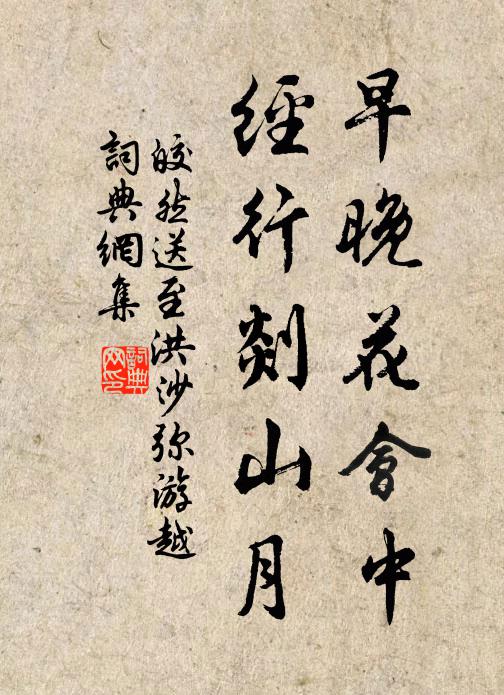 早晚花會中
經行剡山月
皎然送至洪沙弥游越
詞典網集
詞典網印